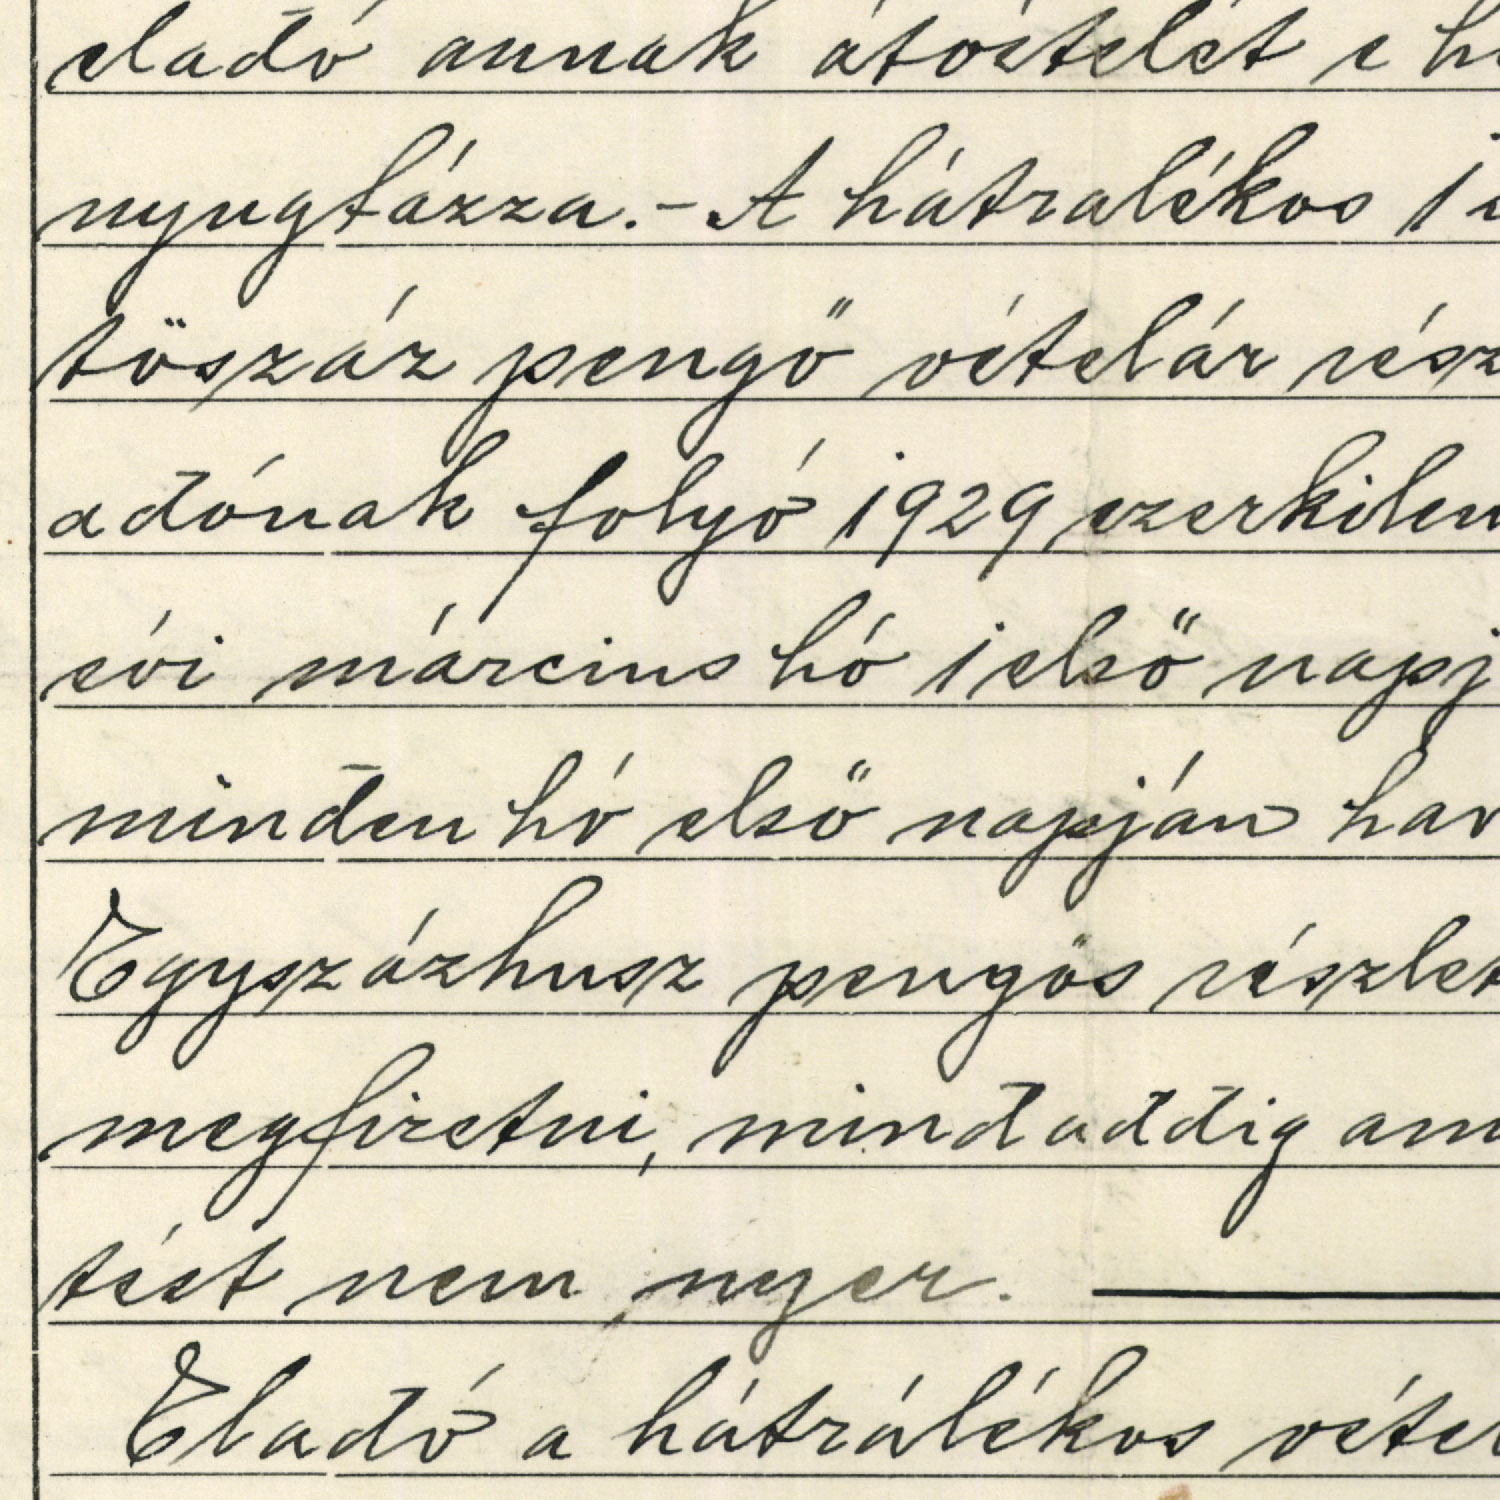 eladó annak átöstelét e
nyugtázza.- A hátralékos 1
töszáz pengő vételár rész
adónak folyó 1929, ezerkilen
évi március hó 1 első napj
minden hó első napján hav
Egyszázhusz pengős részlet
megfizetni, mindaddig am
tést nem nyer.
Eladó a hátrálékos vétel